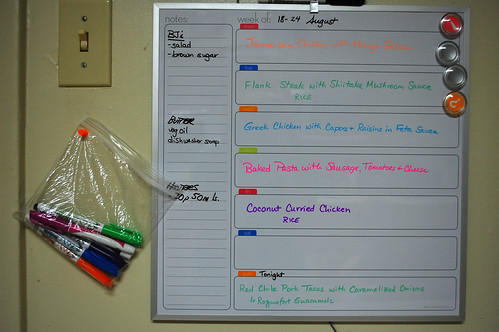 notes:
BJ's
-salad
-brown sugar
BUTTER
veg oil
dishwasher soap
week of: 18-24 August
Flank Steak with Shiitake Mushroom Sauce
RICE
Greek Chicken with Capers + Raisins in Feta Sauce
Baked Pasta with Sausage, Tomatoes + Cheese
Coconut Curried Chicken
RICE
Tonight
Red Chile Pork Tacos with Caramelized Onions
Roquefort Guacamole